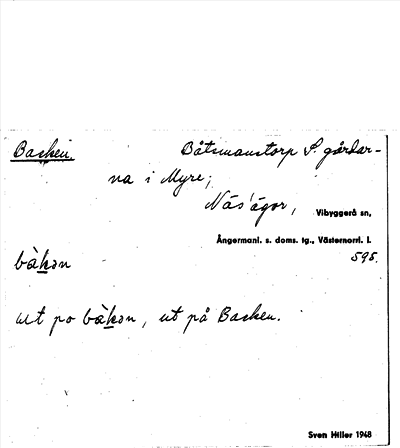 Backen. Båtsmanstorp S. gårdar-
na i Myre;
Näs' ägor, Vibyggerå sn,
Ångermanl. s. doms. tg., Västernorrl. l.
595.
bàkən
ut po bàkən, ut på Backen.
Sven Hiller 1948